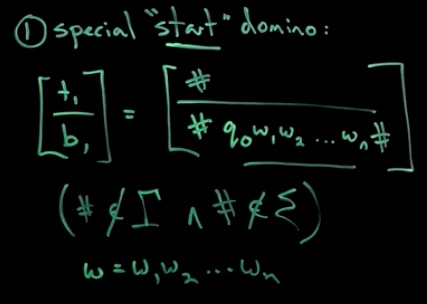 ① special "start" domino:
[t₁/b₁] = [#/# q₀w₁w₂...wₙ#]
(# ∉ Γ ∧ # ∉ Σ)
w = w₁w₂...wₙ